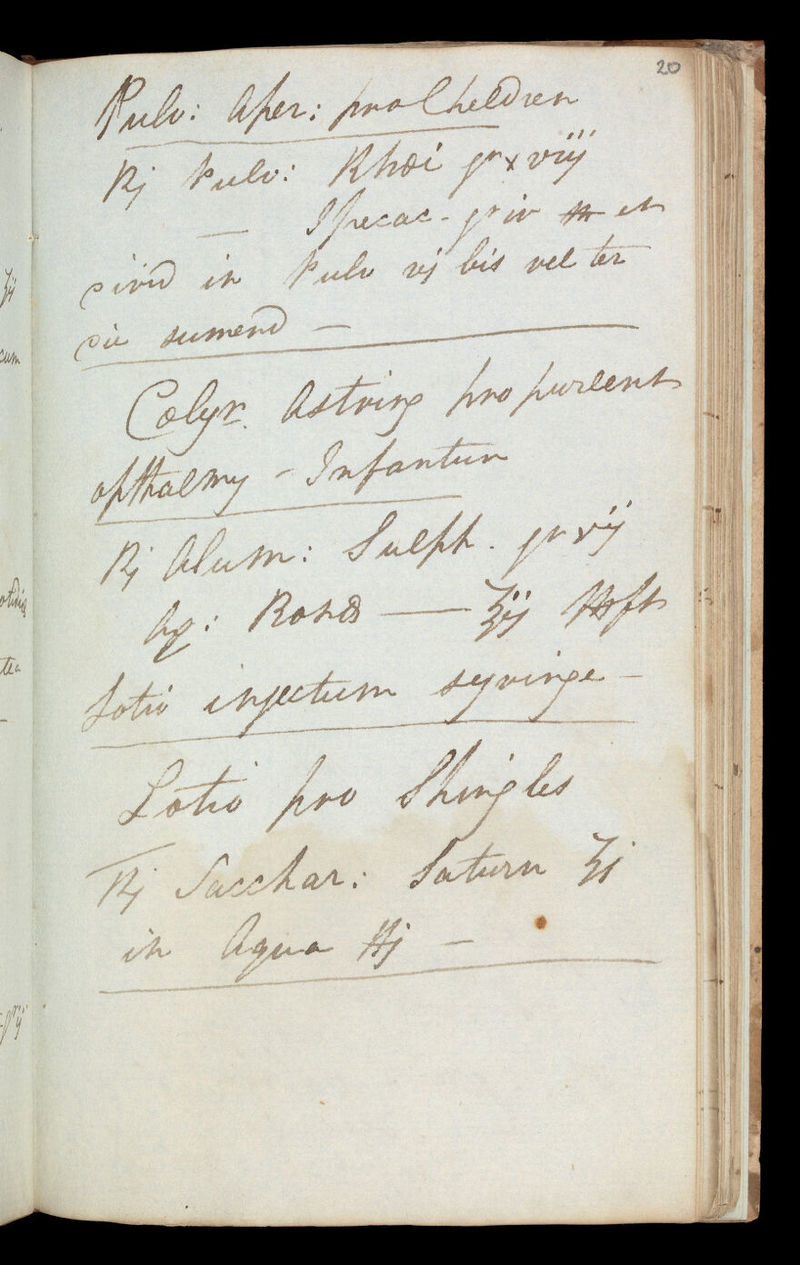 20
Pulv: Aper: pro Children
℞ Pulv: Rhœi gr xviij
— Ipecac - gr iv et
divid in Pulv vj bis vel ter
die sumend —
Colyr. Astring pro purulent
opthalmy - Infantum
℞ Alum: Sulph. gr vij
Aq: Rosæ — ℥ij ft
Lotio injectum syringe —
Lotio pro Shingles
℞ Sacchar: Saturn ʒj
in Aqua ℔j —